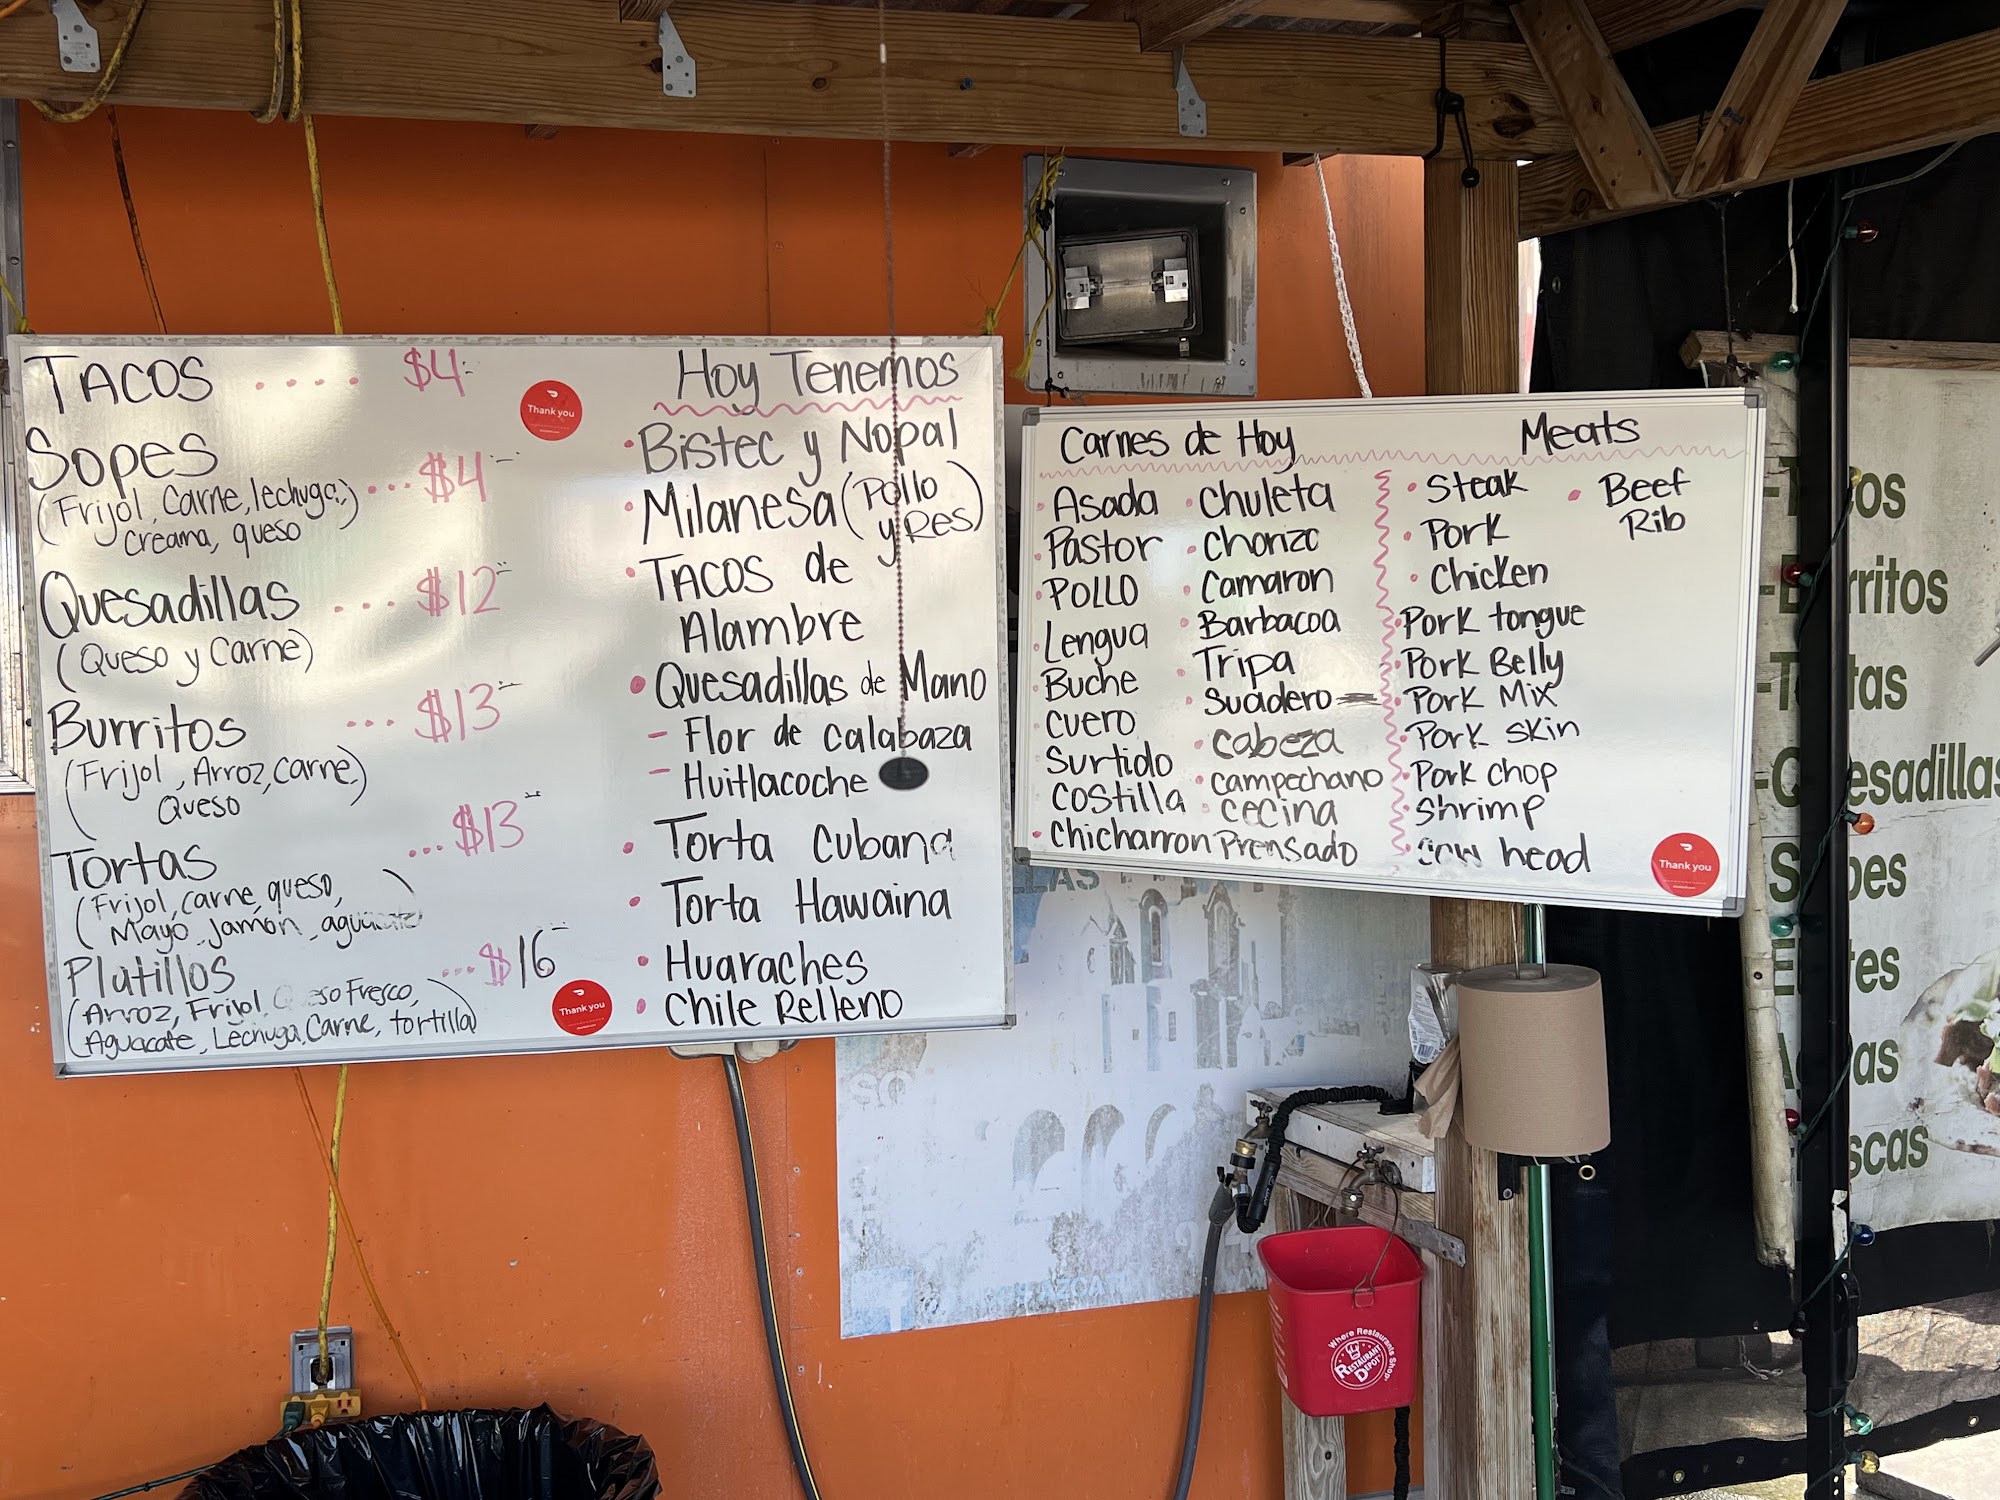 TACOS .... $4
Sopes ... $4
(Frijol, Carne, lechuga,)
Creama, queso
Quesadillas .... $12
(Queso y Carne)
Burritos ... $13
(Frijol, Arroz, Carne,)
Queso
Tortas ... $13
(Frijol, carne, queso,
Mayo, jamon, aguacate)
Platillos ... $16
(Arroz, Frijol, Queso Fresco,
Aguacate, Lechuga, Carne, tortilla)
Thank you
Thank you
Hoy Tenemos
• Bistec y Nopal
• Milanesa (Pollo
y Res)
• TACOS de
Alambre
• Quesadillas de Mano
- Flor de calabaza
- Huitlacoche
• Torta Cubana
• Torta Hawaina
• Huaraches
• Chile Relleno
Carnes de Hoy
• Asada
• Pastor
• POLLO
• Lengua
• Buche
• cuero
• Surtido
• Costilla
• Chicharron Prensado
• Chuleta
• Chorizo
• Camaron
• Barbacoa
• Tripa
• Suadero
• Cabeza
• campechano
• cecina
Meats
• Steak
• Pork
• Chicken
• Pork tongue
• Pork Belly
• Pork Mix
• Pork skin
• Pork chop
• Shrimp
• Cow head
• Beef
Rib
Thank you
Where Restaurants Shop
RESTAURANT
DEPOT